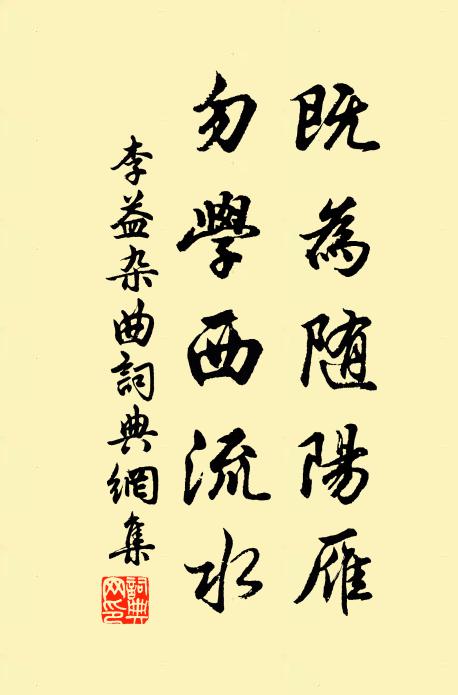 既為随陽雁
勿學西流水
李益杂曲詞典網集
詞典網印